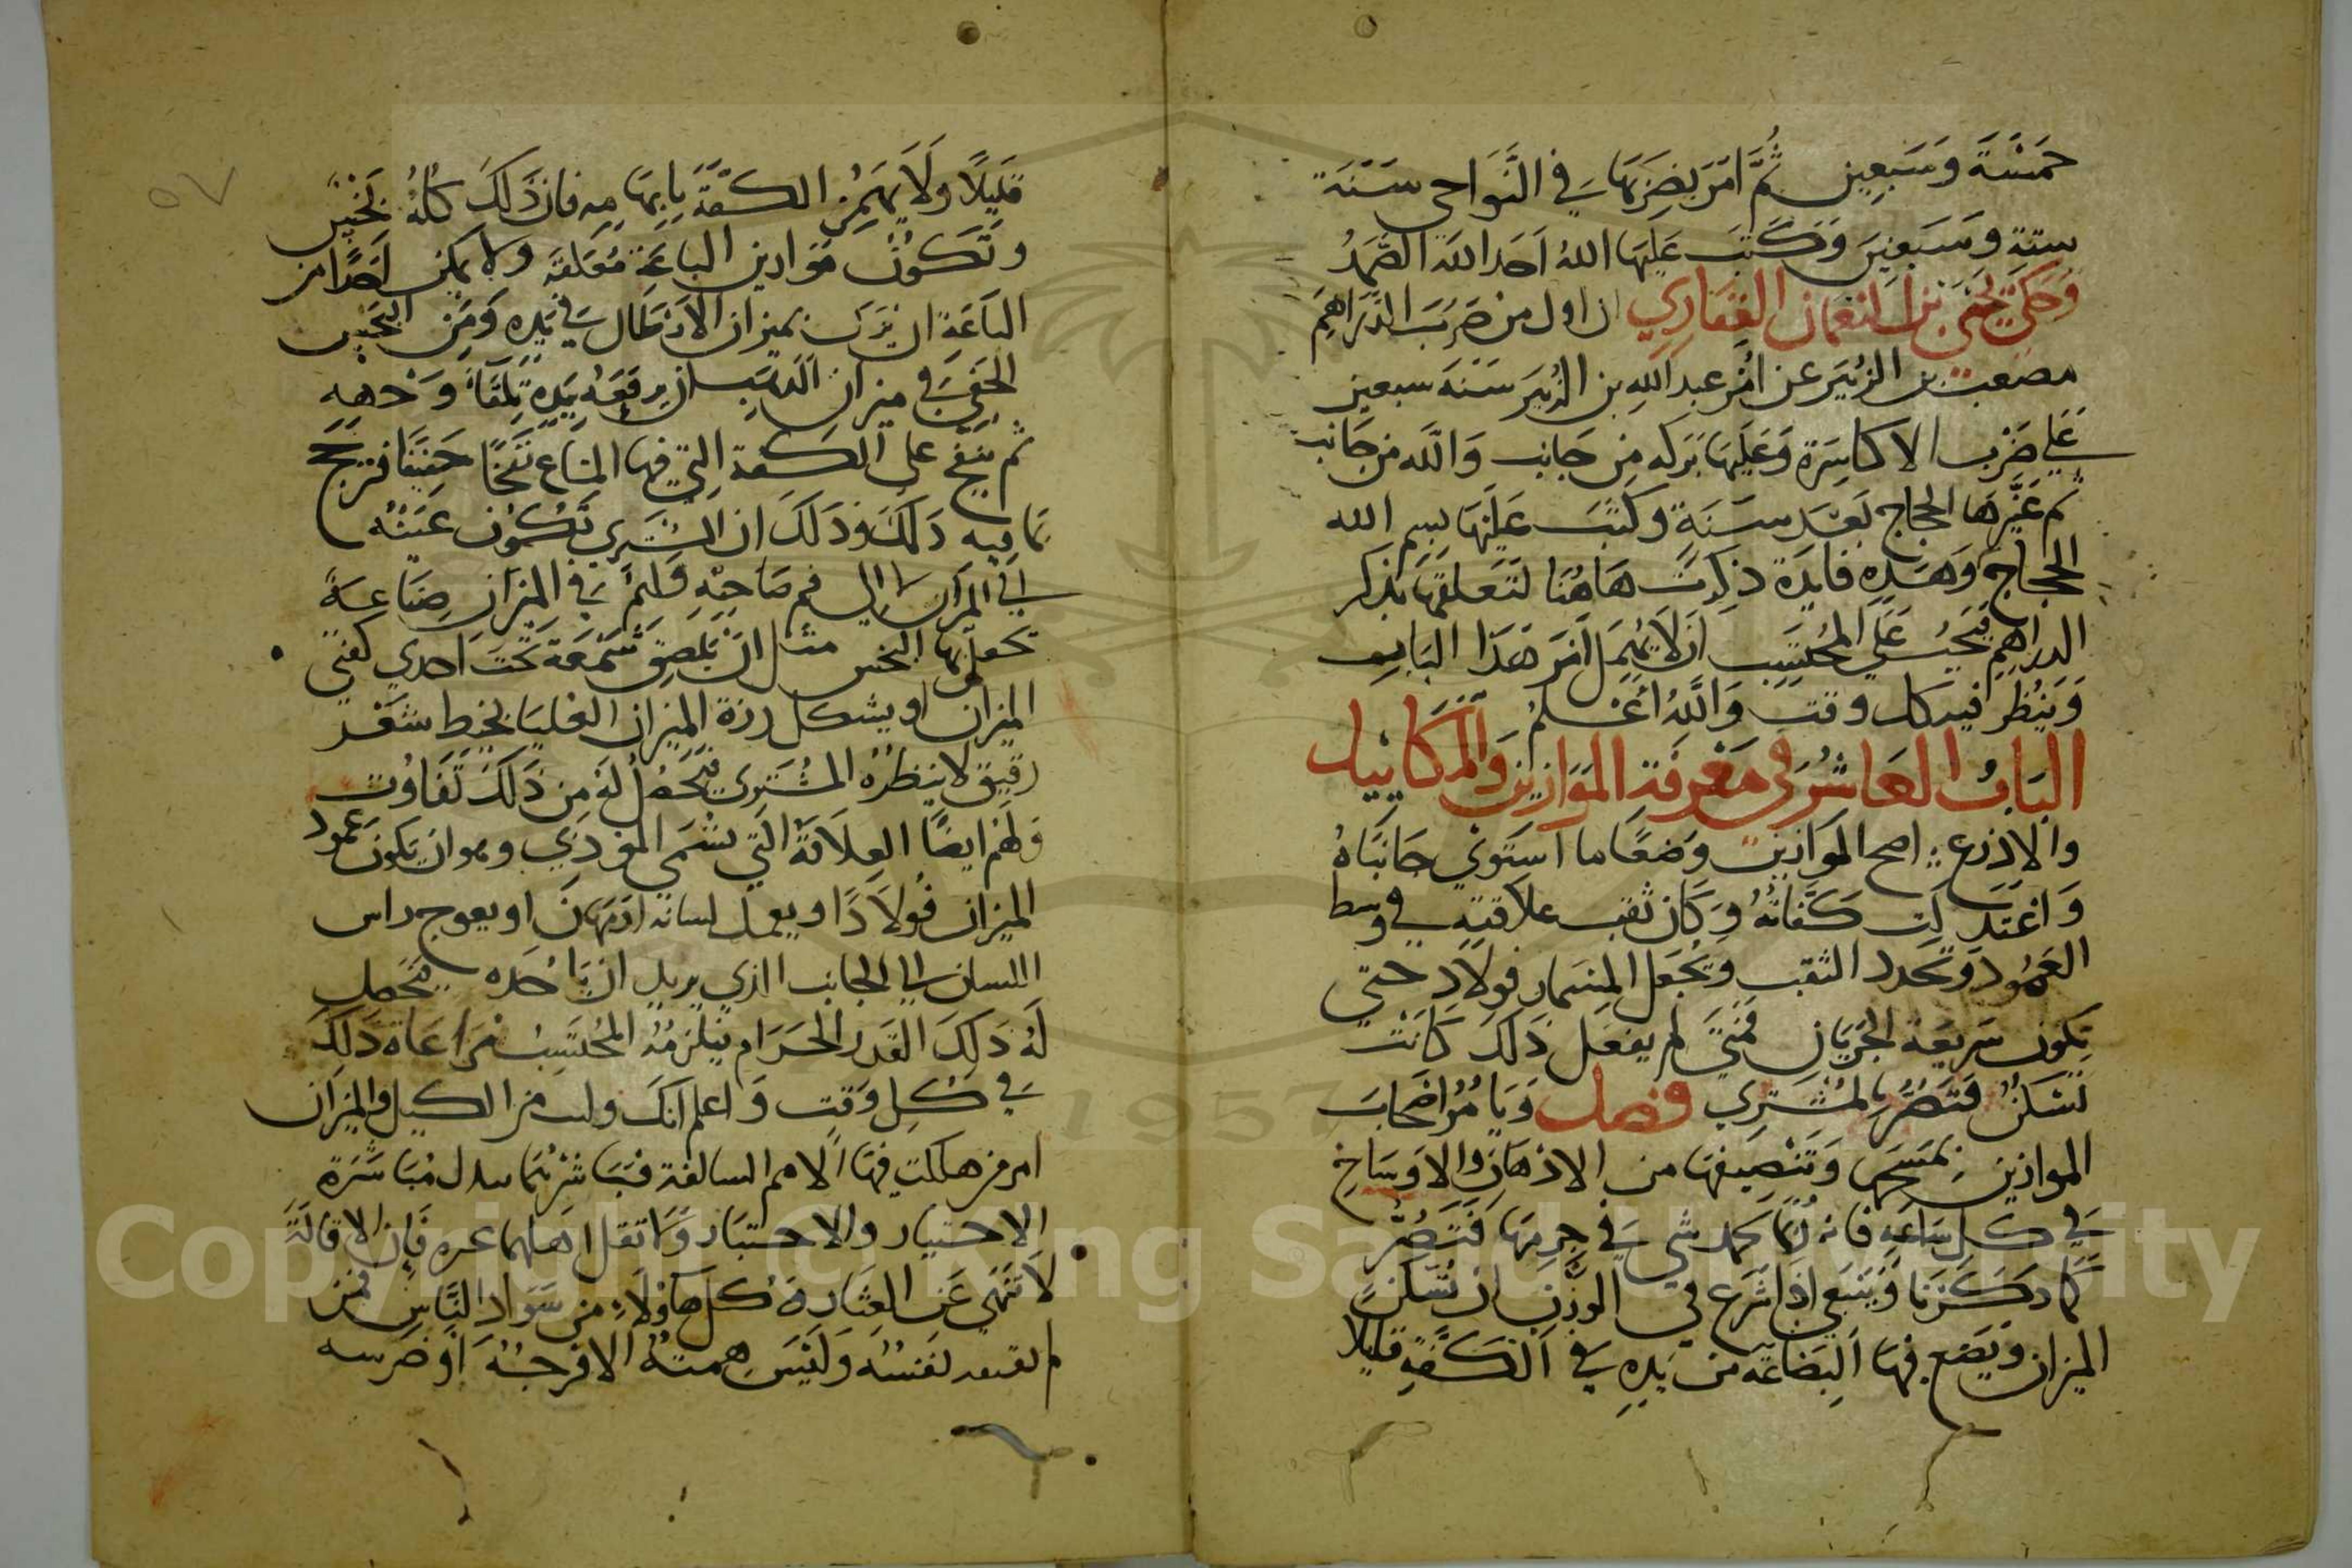 خمسة وسبعين ثم امر بضربها في النواحي سنة
ستة وسبعين وكتب عليها الله احد الله الصمد
وحكى يحيى بن النعمان الغفاري ان اول من ضرب الدراهم
مصعب بن الزبير عن امر عبد الله بن الزبير سنة سبعين
على ضرب الاكاسرة وعليها بركه من جانب والله من جانب
ثم غيرها الحجاج بعد سنة وكتب عليها بسم الله
الحجاج وهذه فايدة ذكرت هاهنا لتعلقها بذكر
الدراهم فيجب على المحتسب ان لا يهمل امر هذا الباب
وينظر فيه كل وقت والله اعلم
الباب العاشر في معرفة الموازين والمكاييل
والاذرع اصح الموازين وضعا ما استوي جانباه
واعتدلت كفتاه وكان ثقب علاقته في وسط
العمود وتحدد الثقب ويجعل المسمار فولاد حتي
تكون سريعة الجريان فمتى لم يفعل ذلك كانت
تسكن فتضر بالمشتري فصل ويامر اصحاب
الموازين بمسحها وتنضيفها من الادهان والاوساخ
في كل ساعه فانه ربما تجمد شي في جرمها فتضر
كما ذكرنا وينبغي اذا شرع في الوزن ان تسكن
الميزان ويضع فيها البضاعة من يده في الكفة قليلا
قليلا ولا يهمز الكفة بابهامه فان ذلك كله بخس
وتكون موازين الباعة معلقه ولا يمكن احدا من
الباعة ان يزن بميزان الارطال في يده ومن البخس
الخفي في ميزان الذهب ان يرفعه بيده تلقاء وجهه
ثم ينفخ على الكفة التي فيها المتاع نفخا خفيفا فترجح
بما فيه ذلك وذلك ان المشتري تكون عينه
الى الميزان لا الى فم صاحبه ولهم في الميزان صناعة
تحصل بها البخس مثل ان يلصق شمعة تحت احدي كفتي
الميزان او يشكل رزة الميزان العليا بخيط شعر
رقيق لا ينظره المشتري فيحصل له من ذلك تفاوت
ولهم ايضا العلاقة التي تسمى وهو ان يكون عمود
الميزان فولادا ويعمل لسانه او يعوج راس
اللسان الى الجانب الذي يريد ان ياخذه فيحصل
له ذلك القدر الحرام فيلزم المحتسب مراعاة ذلك
في كل وقت واعلم انك وليت من الكيل والميزان
امر من هلكت فيها الامم السالفة فباشرهما مباشرة
الاختيار والاختبار ولا تقل اهلهما عثره فان الاقالة
لا تنهي عن العثار وكل هاولاء من سواد الناس ممن
لم نفسه وليس همته الا فرجه او ضرسه